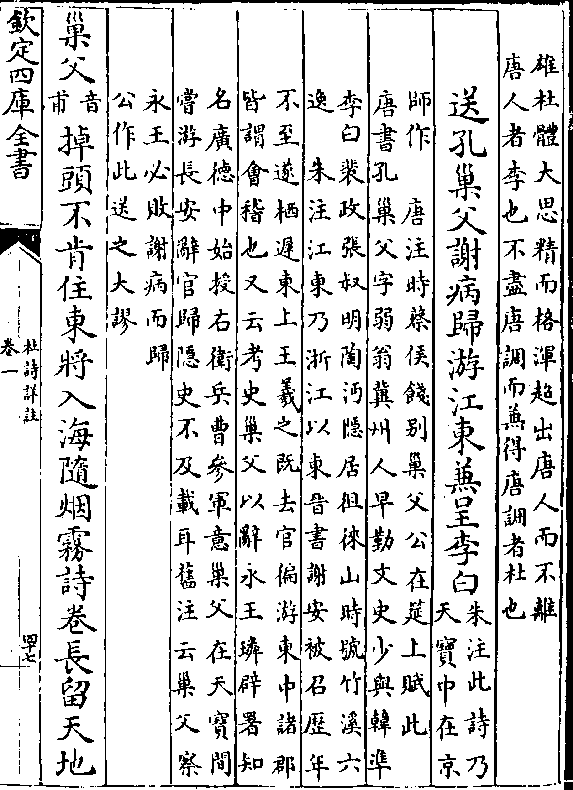 雄杜體大思精而格渾超出唐人而不離
唐人者李也不盡唐調而兼得唐調者杜也
送孔巢父謝病歸游江東兼呈李白
朱注此詩乃
天寶中在京
師作　唐注時蔡侯餞别巢父公在筵上賦此
唐書孔巢父字弱翁冀州人早勤文史少與韓準
李白裴政張奴明陶沔隱居徂徠山時號竹溪六
逸　朱注江東乃浙江以東晉書謝安被召歷年
不至遂栖遲東上王羲之既去官偏游東中諸郡
皆謂會稽也又云考史巢父以辭永王璘辟署知
名廣德中始授右衛兵曹參軍意巢父在天寶間
嘗游長安辭官歸隱史不及載耳舊注云巢父察
永王必敗謝病而歸
公作此送之大謬
巢父
音
甫
掉頭不肯住東將入海隨烟霧詩卷長留天地
欽定四庫全書
杜詩詳註
卷一
四七